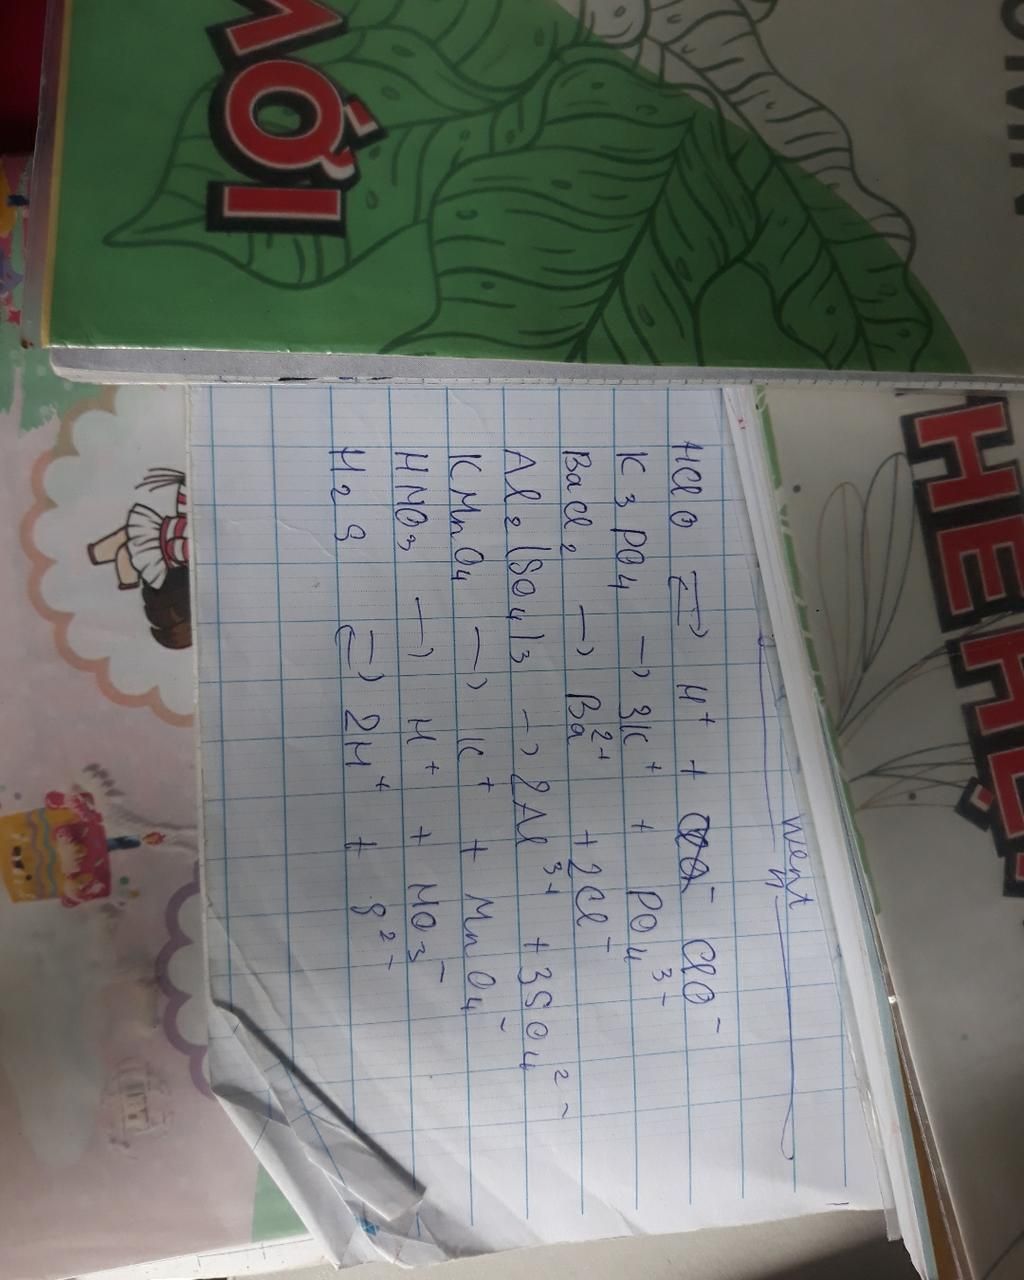 ỢI
HEAL
went
HClO ⇌ H⁺ + ClO⁻
K3PO4 → 3K⁺ + PO4³⁻
BaCl2 → Ba²⁺ + 2Cl⁻
Al2(SO4)3 → 2Al³⁺ + 3SO4²⁻
KMnO4 → K⁺ + MnO4⁻
HNO3 → H⁺ + NO3⁻
H2S ⇌ 2H⁺ + S²⁻